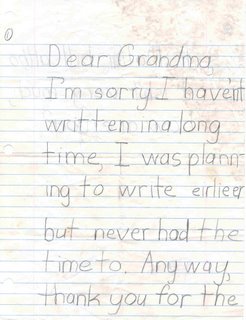 Dear Grandma,
I'm sorry I haven't
written in a long
time, I was plann
ing to write eirlieer
but never had the
time to. Any way,
thank you for the